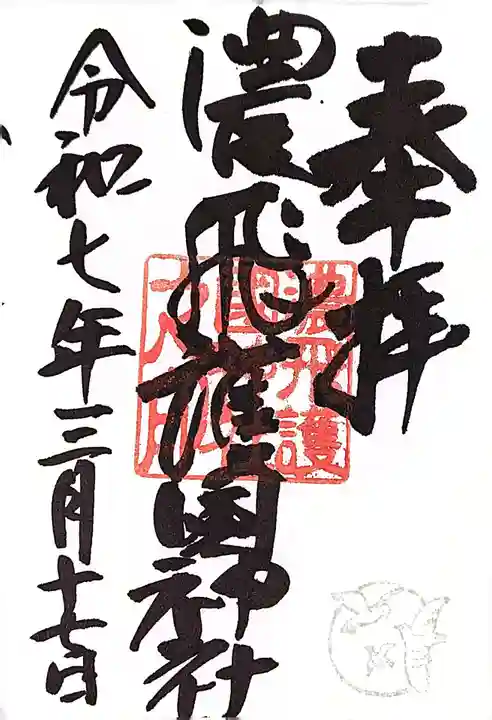 奉拝
濃飛護國神社
令和七年三月十七日
濃飛護